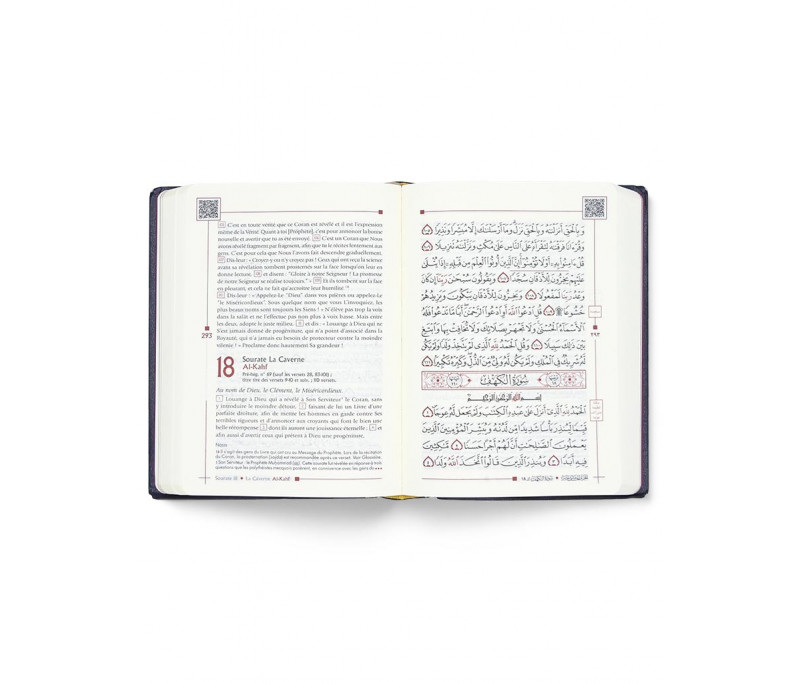 C'est en toute vérité que ce Coran est révélé et il est l'expression
même de la Vérité. Quant à toi [Prophète], c'est pour annoncer la bonne
nouvelle et avertir que tu as été envoyé. 106 C'est un Coran que Nous
avons révélé fragment par fragment, afin que tu le récites lentement aux
gens. C'est pour cela que Nous l'avons fait descendre graduellement.
107 Dis-leur : « Croyez-y ou n'y croyez pas ! Ceux qui ont reçu la science
avant sa révélation tombent prosternés sur la face lorsqu'on leur en
donne lecture, 108 et disent : "Gloire à notre Seigneur ! La promesse
de notre Seigneur se réalise toujours." » 109 Et ils tombent sur la face
en pleurant, et cela ne fait qu'accroître leur humilité
110 Dis-leur : « Appelez-Le "Dieu" dans vos prières ou appelez-Le
"le Miséricordieux". Sous quelque nom que vous L'invoquiez, les
plus beaux noms sont toujours les Siens ! » N'élève pas trop la voix
dans ta salât et ne l'effectue pas non plus à voix basse. Mais entre
les deux, adopte le juste milieu. 111 et dis : « Louange à Dieu qui ne
S'est jamais donné de progéniture, qui n'a point d'associé dans la
Royauté, qui n'a jamais eu besoin de protecteur contre la moindre
vilenie ! » Proclame donc hautement Sa grandeur !
293
18 Sourate La Caverne
Al-Kahf
Pré-hég. n° 69 (sauf les versets 28, 83-101) ;
Au nom de Dieu, le Clément, le Miséricordieux.
1 Louange à Dieu qui a révélé à Son Serviteur le Coran, sans
y introduire le moindre détour, 2 faisant de lui un Livre d'une
parfaite droiture, afin de mettre les hommes en garde contre Ses
terribles rigueurs et d'annoncer aux croyants qui font le bien une
belle récompense 3 dont ils auront une jouissance éternelle ; 4 et
afin aussi d'avertir ceux qui prêtent à Dieu une progéniture.
Notes
Sourate 18 La Caverne Al-Kahf
وَبِالْحَقِّ أَنزَلْنَاهُ وَبِالْحَقِّ نَزَلَ وَمَا أَرْسَلْنَاكَ إِلَّا مُبَشِّرًا وَنَذِيرًا ١٠٥
وَقُرْآنًا فَرَقْنَاهُ لِتَقْرَأَهُ عَلَى النَّاسِ عَلَىٰ مُكْثٍ وَنَزَّلْنَاهُ تَنزِيلًا ١٠٦
قُلْ آمِنُوا بِهِ أَوْ لَا تُؤْمِنُوا إِنَّ الَّذِينَ أُوتُوا الْعِلْمَ مِن قَبْلِهِ إِذَا يُتْلَىٰ
عَلَيْهِمْ يَخِرُّونَ لِلْأَذْقَانِ سُجَّدًا ١٠٧ وَيَقُولُونَ سُبْحَانَ رَبِّنَا إِن كَانَ
وَعْدُ رَبِّنَا لَمَفْعُولًا ١٠٨ وَيَخِرُّونَ لِلْأَذْقَانِ يَبْكُونَ وَيَزِيدُهُمْ
خُشُوعًا ۩ ١٠٩ قُلِ ادْعُوا اللَّهَ أَوِ ادْعُوا الرَّحْمَٰنَ أَيًّا مَّا تَدْعُوا فَلَهُ
الْأَسْمَاءُ الْحُسْنَىٰ وَلَا تَجْهَرْ بِصَلَاتِكَ وَلَا تُخَافِتْ بِهَا وَابْتَغِ
بَيْنَ ذَٰلِكَ سَبِيلًا ١١٠ وَقُلِ الْحَمْدُ لِلَّهِ الَّذِي لَمْ يَتَّخِذْ وَلَدًا وَلَمْ يَكُن
لَّهُ شَرِيكٌ فِي الْمُلْكِ وَلَمْ يَكُن لَّهُ وَلِيٌّ مِّنَ الذُّلِّ وَكَبِّرْهُ تَكْبِيرًا ١١١
سُورَةُ الْكَهْفِ
بِسْمِ اللَّهِ الرَّحْمَٰنِ الرَّحِيمِ
الْحَمْدُ لِلَّهِ الَّذِي أَنزَلَ عَلَىٰ عَبْدِهِ الْكِتَابَ وَلَمْ يَجْعَل لَّهُ عِوَجًا ١
قَيِّمًا لِّيُنذِرَ بَأْسًا شَدِيدًا مِّن لَّدُنْهُ وَيُبَشِّرَ الْمُؤْمِنِينَ الَّذِينَ
يَعْمَلُونَ الصَّالِحَاتِ أَنَّ لَهُمْ أَجْرًا حَسَنًا ٢ مَّاكِثِينَ
فِيهِ أَبَدًا ٣ وَيُنذِرَ الَّذِينَ قَالُوا اتَّخَذَ اللَّهُ وَلَدًا ٤
٢٩٣